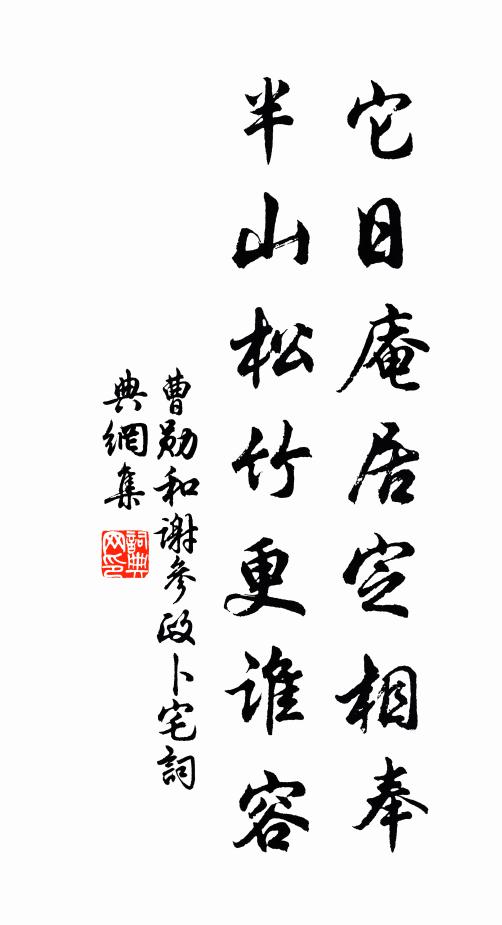 它日庵居定相奉
半山松竹更谁容
曹勋和谢参政卜宅詞
典網集
詞典
网印